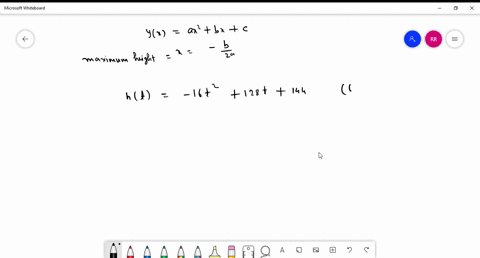 Microsoft Whiteboard
y(x) = ax² + bx + c
maximum height = x = - b/2a
RR
h(t) = -16t² + 128t + 144 ((
A